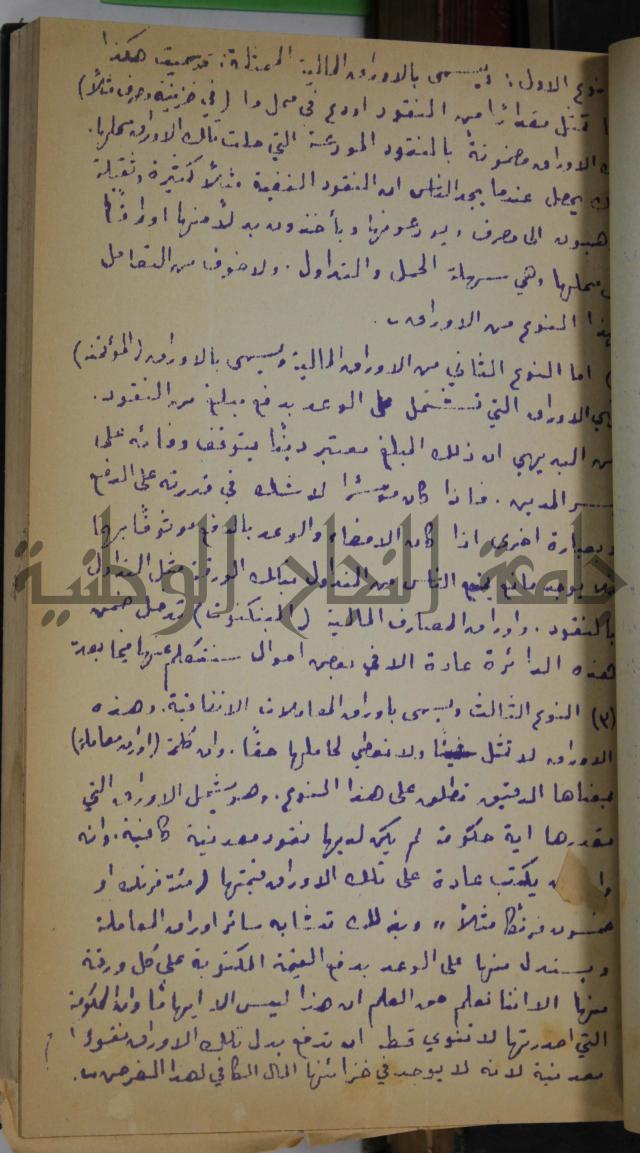 نوع الاول: ويسمى بالاوراق المالية الممثلة: قد سميت هكذا
تمثل مقدارا من النقود اودع في محل ما (في خزينة مصرف مثلاً)
الاوراق مضمونة بالنقود المودعة التي حلت تلك الاوراق محلها.
يحصل عندما يجد الناس ان النقود الفضية مثلاً كثيرة وثقيلة
الى مصرف ويودعونها ويأخذون بدلاً منها اوراقاً
محلها وهي سهلة الحمل والتداول. ولا خوف من التعامل
هذا النوع من الاوراق.
اما النوع الثاني من الاوراق المالية ويسمى بالاوراق (المؤتمنة)
فهي الاوراق التي تشتمل على الوعد بدفع مبلغ من النقود.
من البديهي ان ذلك المبلغ معتبر ديناً يتوقف وفائه على
المدين. فاذا كان لا شك في قدرته على الدفع
وبعبارة اخرى اذا كان الامضاء والوعد بالدفع موثوقاً بهما
فلا يوجد مانع يمنع الناس من التداول بتلك الورقة مثل التداول
بالنقود. واوراق المصارف المالية (البنكنوت) تدخل ضمن
هذه الدائرة عادة الا في بعض احوال سنتكلم عنها فيما بعد
(٣) النوع الثالث ويسمى باوراق المعاملات الاتفاقية. وهذه
الاوراق لا تمثل شيئاً ولا تعطي لحاملها حقاً. وان كلمة (اوراق معاملة)
بمعناها الدقيق تطلق على هذا النوع. وهو يشمل الاوراق التي
تصدرها اية حكومة لم يكن لديها نقود معدنية كافية. وانه
يكتب عادة على تلك الاوراق قيمتها (مئة فرنك او
خمسون فرنكا مثلاً) وبذلك تتشابه سائر اوراق المعاملة
ويستدل منها على الوعد بدفع القيمة المكتوبة على كل ورقة
منها الا اننا نعلم حق العلم ان هذا ليس الا ايهاماً وان الحكومة
التي اصدرتها لا تنوي قط ان تدفع بدل تلك الاوراق نقوداً
معدنية لانه لا يوجد في خزائنها المال الكافي لهذا الغرض.
جامعة النجاح الوطنية